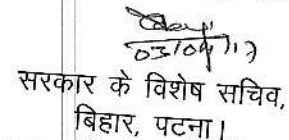 03/04/17
सरकार के विशेष सचिव,
बिहार, पटना।